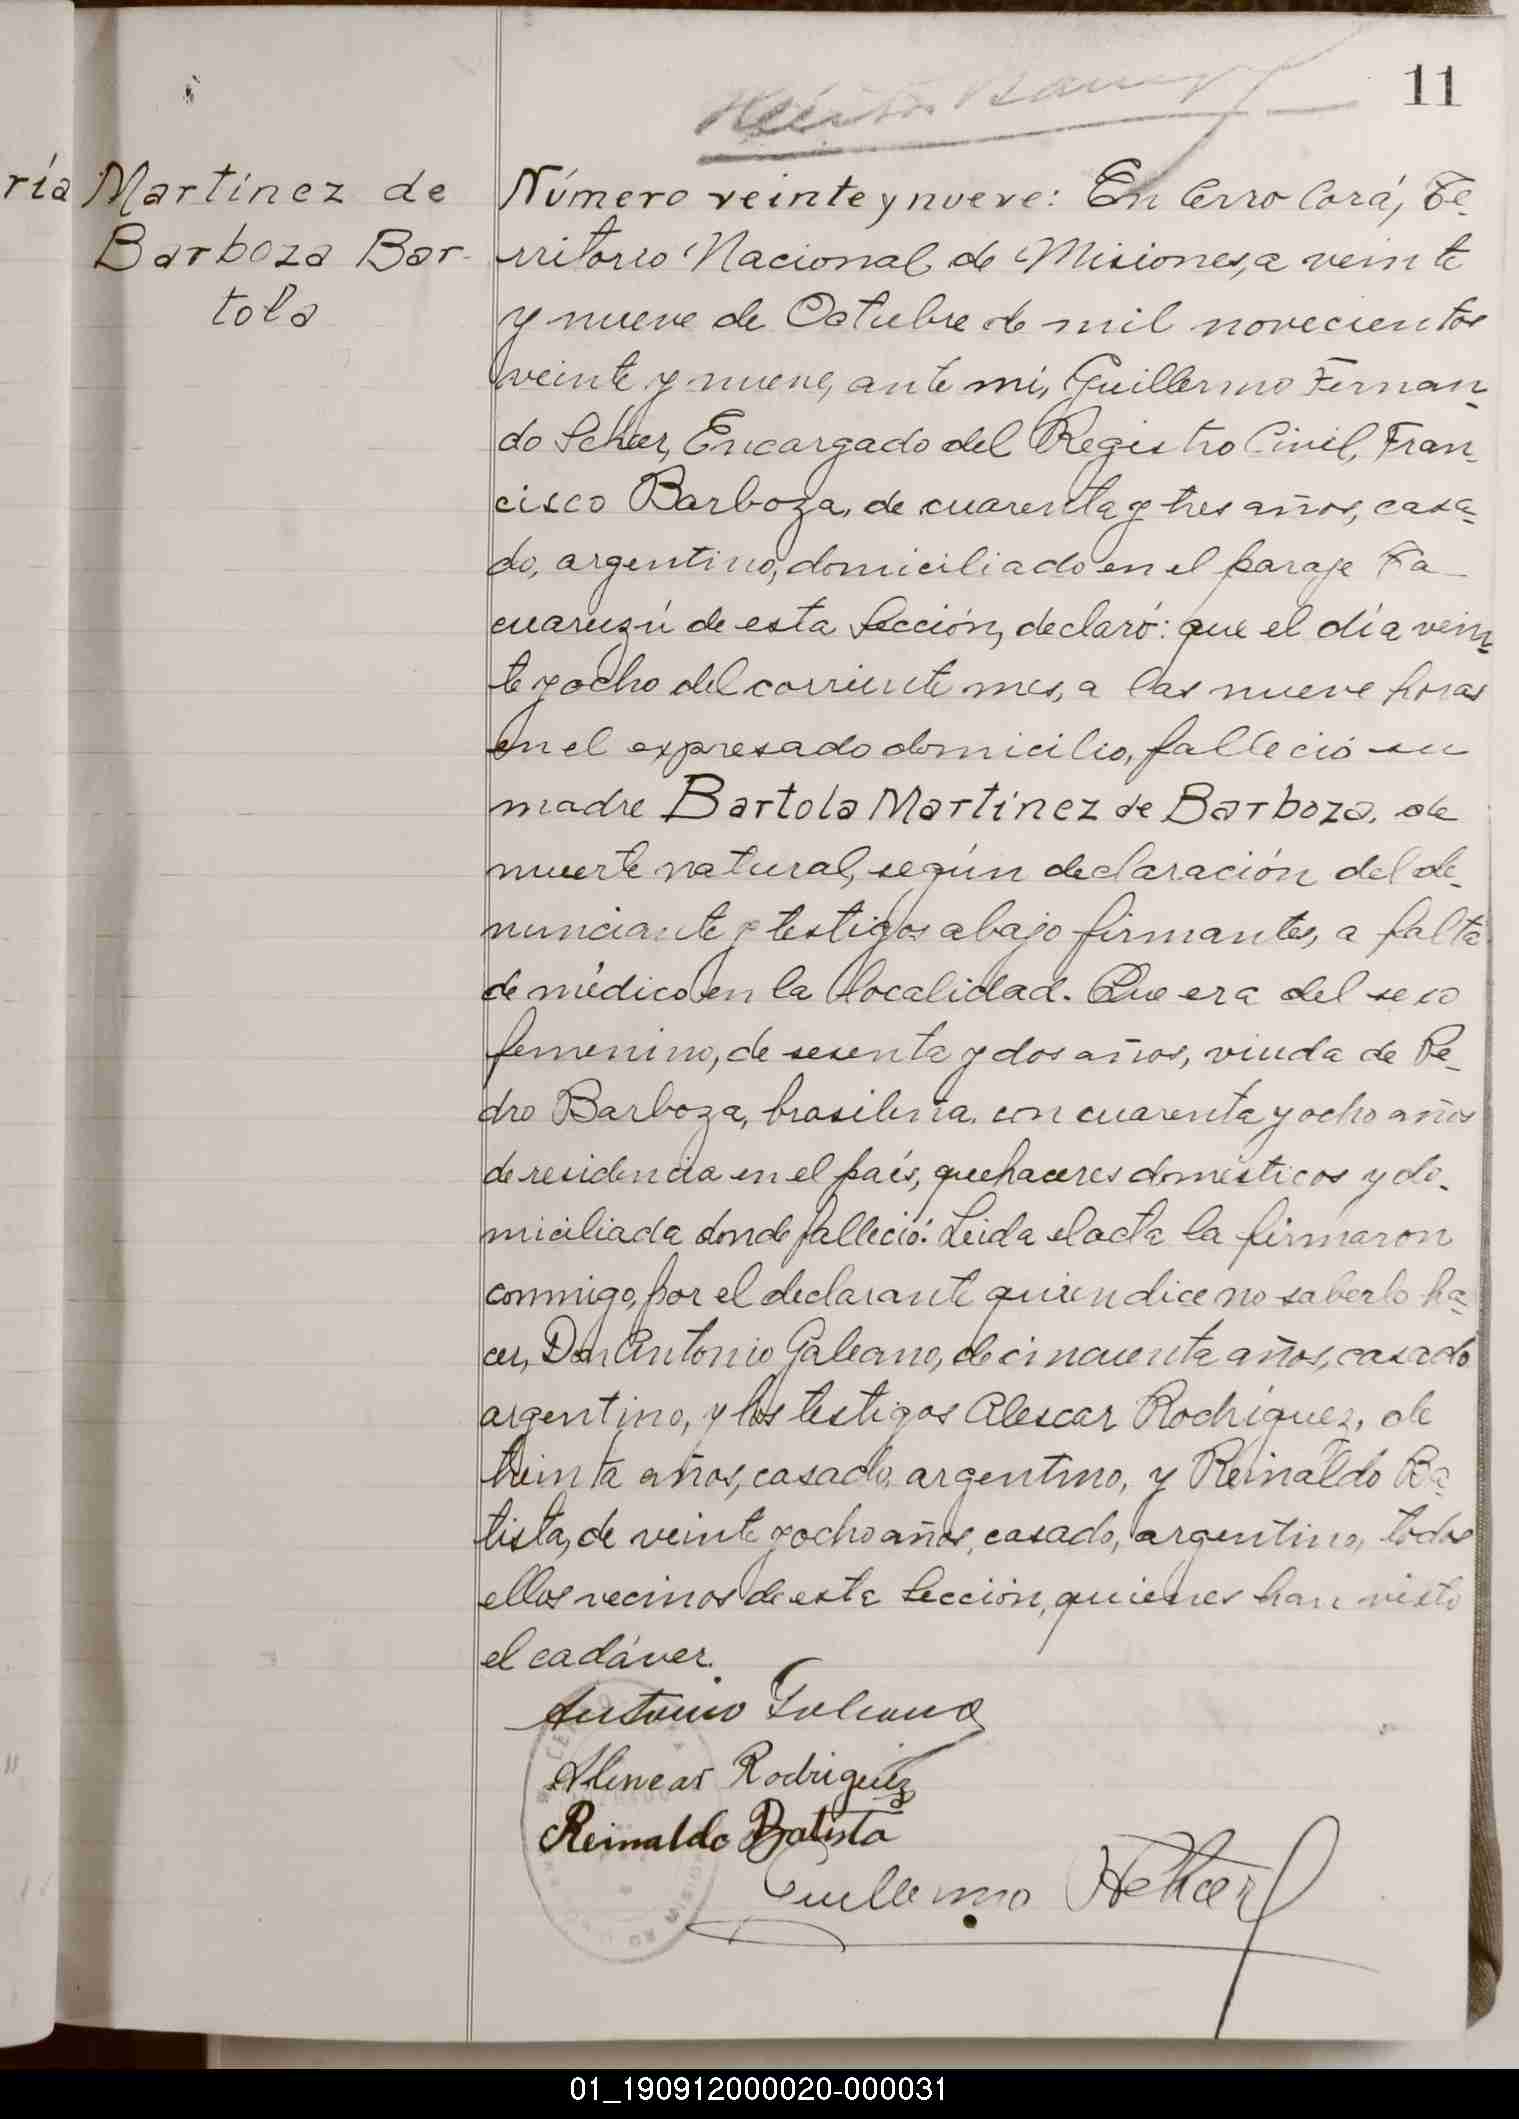 11
ría
Martínez de
Barboza Bar-
tola
Número veinte y nueve: En Cerro Corá, Te-
rritorio Nacional de Misiones, a veinte
y nueve de Octubre de mil novecientos
veinte y nueve, ante mí, Guillermo Fernan-
do Scheer, Encargado del Registro Civil, Fran-
cisco Barboza, de cuarenta y tres años, casa-
do, argentino, domiciliado en el paraje Ta-
cuaruzú de esta Sección, declaró: que el día vein-
te y ocho del corriente mes, a las nueve horas
en el expresado domicilio, falleció su
madre Bartola Martínez de Barboza, de
muerte natural, según declaración del de-
nunciante y testigos abajo firmantes, a falta
de médico en la localidad. Que era del sexo
femenino, de sesenta y dos años, viuda de Pe-
dro Barboza, brasileña, con cuarenta y ocho años
de residencia en el país, quehaceres domésticos y do-
miciliada donde falleció. Leida el acta la firmaron
conmigo, por el declarante quien dice no saberlo ha-
cer, Don Antonio Galeano, de cincuenta años, casado
argentino, y los testigos Alescar Rodríguez, de
treinta años, casado, argentino, y Reinaldo Ba-
tista, de veinte y ocho años, casado, argentino, todos
ellos vecinos de esta Sección, quienes han visto
el cadáver.
Antonio Galeano
Rodriguez
Reinaldo Batista
Guillermo Scheer
01_190912000020-000031